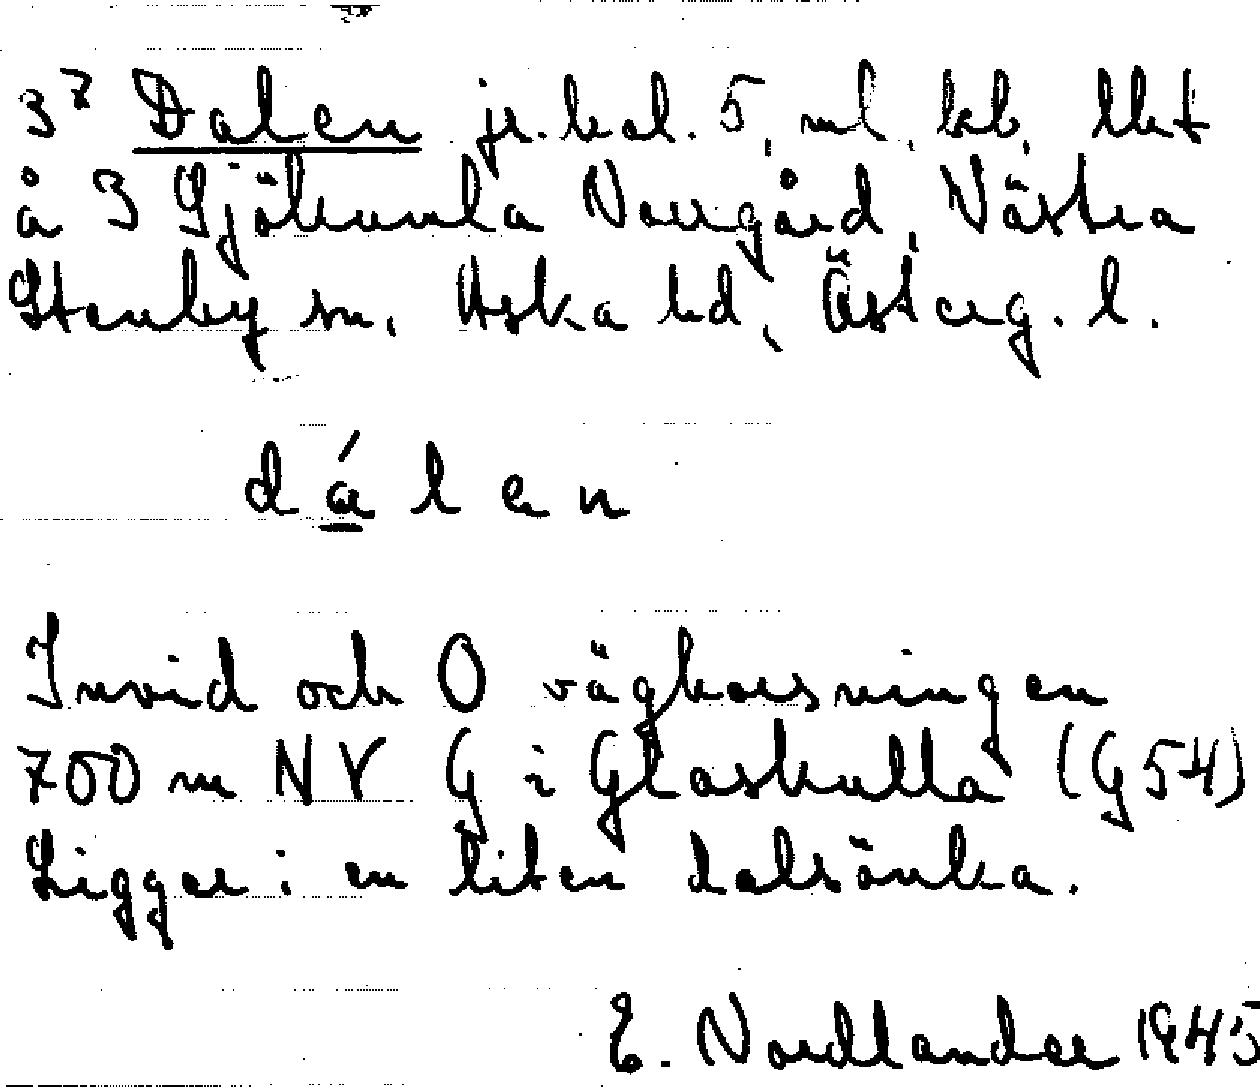 3⁷ Dalen jr. kal. 5, ml, bb, lht
å 3 Gjökumla Norrgård, Västra
Stenby sn, Aska hd, Österg. l.
dálen
Invid och O vägkorsningen
700 m NV G i Glaskulla (G54)
Ligger i en liten dalsänka.
E. Nordlander 1945